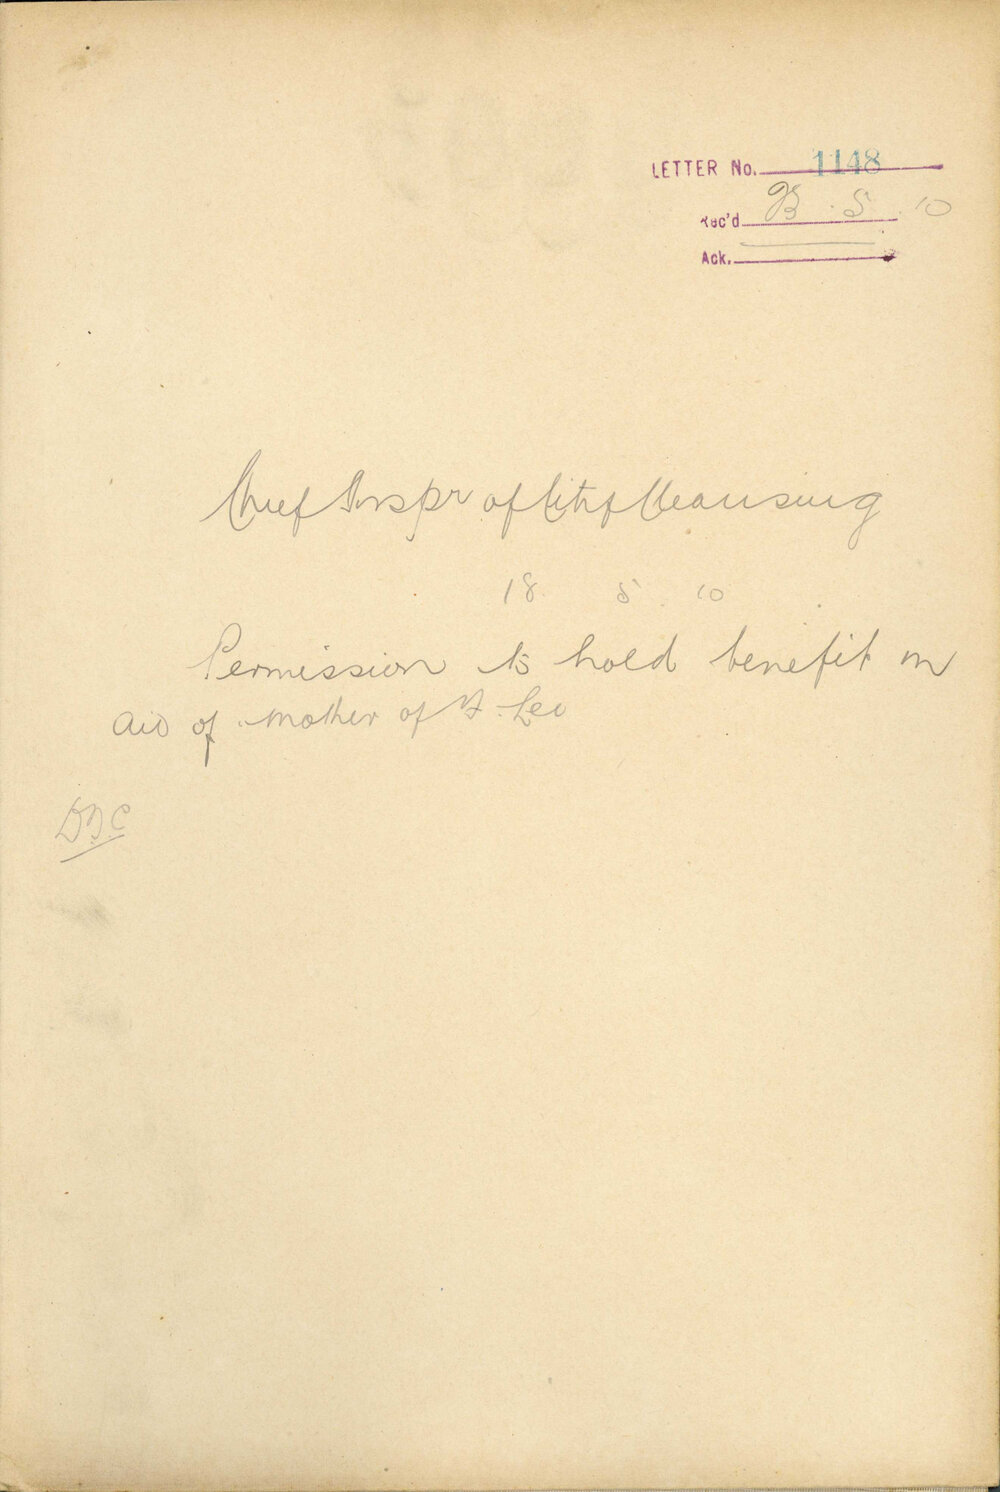 LETTER No. 1148
Rec'd 18. 5. 10
Ack.
Chief Inspr of City Cleansing
18. 5. 10
Permission to hold benefit in
aid of mother of F. Leo